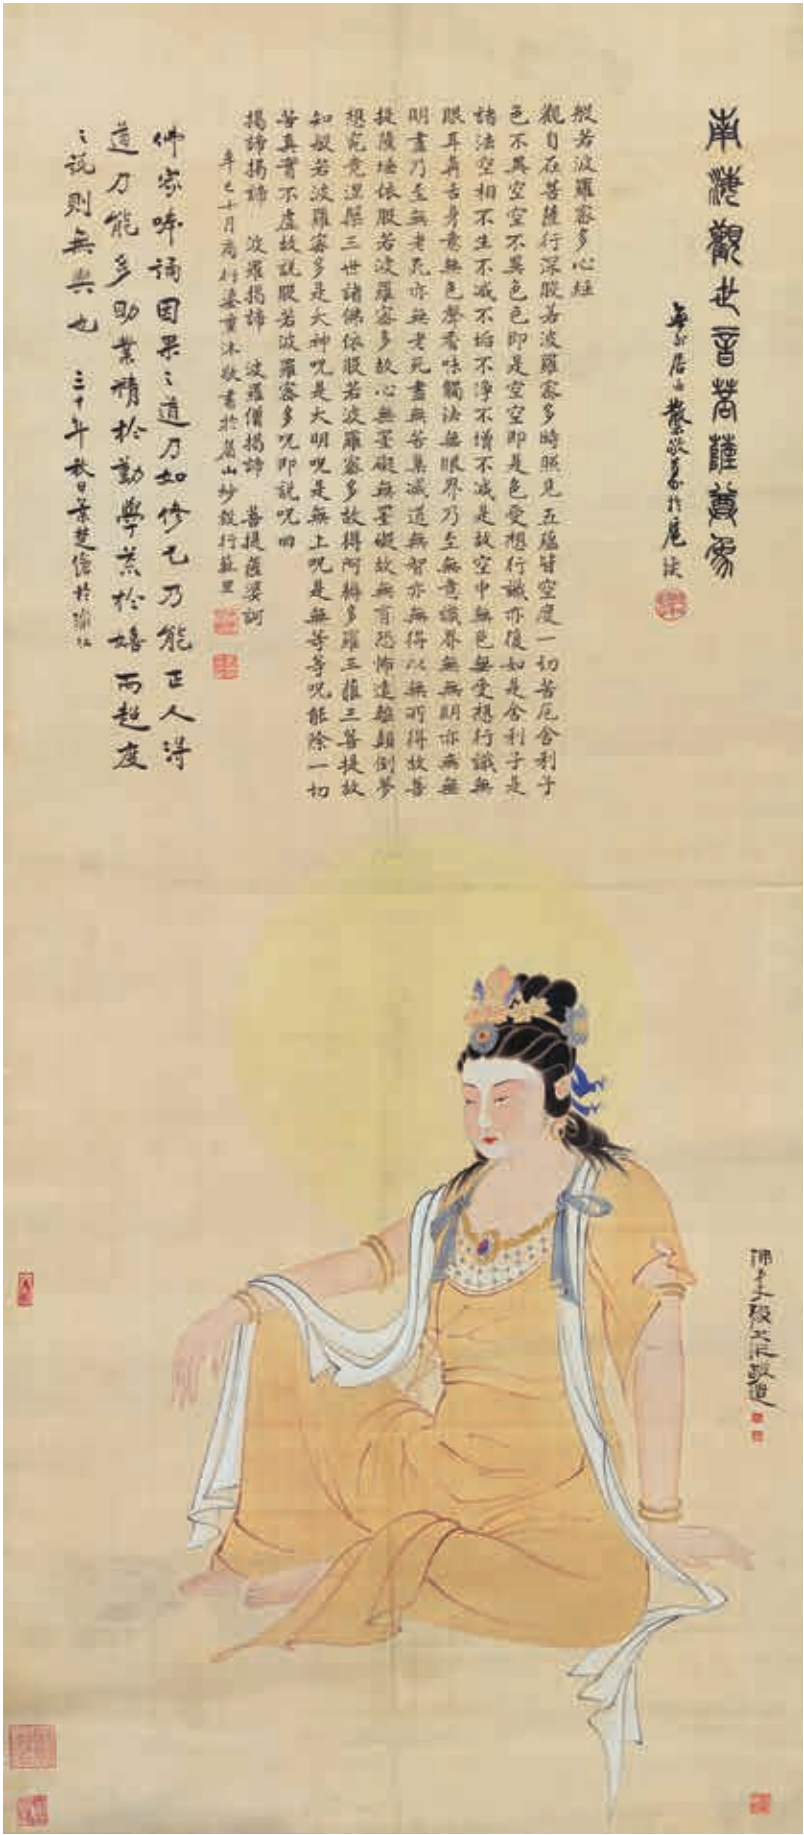 南海觀世音菩薩尊象
居士敬篆於
般若波羅蜜多心經
觀自在菩薩行深般若波羅蜜多時照見五蘊皆空度一切苦厄舍利子
色不異空空不異色色即是空空即是色受想行識亦復如是舍利子是
諸法空相不生不滅不垢不淨不增不減是故空中無色無受想行識無
眼耳鼻舌身意無色聲香味觸法無眼界乃至無意識界無無明亦無無
明盡乃至無老死亦無老死盡無苦集滅道無智亦無得以無所得故菩
提薩埵依般若波羅蜜多故心無罣礙無罣礙故無有恐怖遠離顛倒夢
想究竟涅槃三世諸佛依般若波羅蜜多故得阿耨多羅三藐三菩提故
知般若波羅蜜多是大神咒是大明咒是無上咒是無等等咒能除一切
苦真實不虛故說般若波羅蜜多咒即說咒曰
揭諦揭諦 波羅揭諦 波羅僧揭諦 菩提薩婆訶
辛巳十月商衍鎏重沐敬書於眉山紗縠行蘇里
佛家唪誦因果〻道乃如修己乃能正人得
道乃能多助業精於勤學荒於嬉而超度
〻說則無與也 三十年秋日葉楚傖於渝江
佛弟子張大千敬造